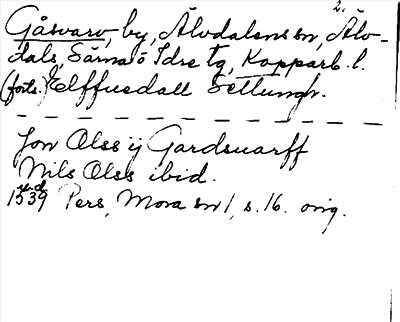 2.
Gåsvarv, by, Älvdalens sn, Älv-
dals, Särna o Idre tg, Kopparb. l.
(forts.) Elffuedall Settungh.
Jon Olss ij Gardsuarff
Nils Olss ibid.
u.d.
1539 Pers, Mora sn 1, s. 16. orig.